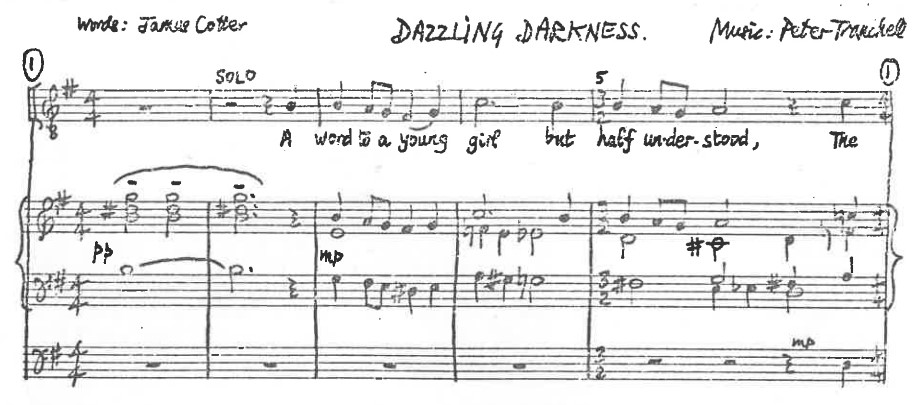 Words: James Cotter DAZZLING DARKNESS. Music: Peter Tranchell
1 1
SOLO 5
A word to a young girl but half un-der-stood, The
pp mp
mp